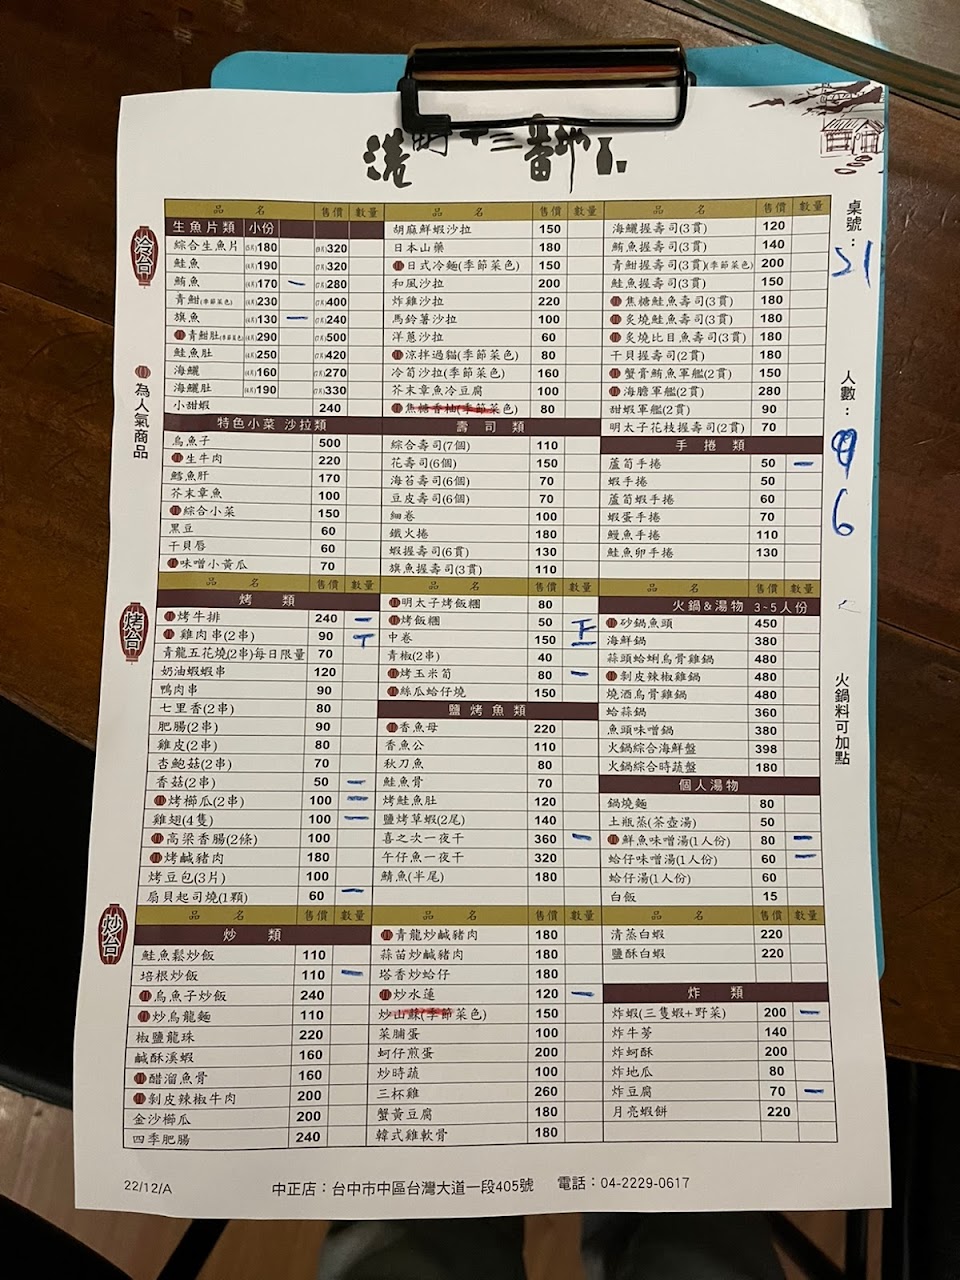 港町十三番地
桌號：
S1
人數：
6
火鍋料可加點
冷台
為人氣商品
品名 售價 數量 品名 售價 數量 品名 售價 數量
生魚片類 小份 胡麻鮮蝦沙拉 150 海鱺握壽司(3貫) 120
綜合生魚片 180 320 日本山藥 180 鮪魚握壽司(3貫) 140
鮭魚 190 320 日式冷麵(季節菜色) 150 青魽握壽司(3貫)(季節菜色) 200
鮪魚 170 一 280 和風沙拉 200 鮭魚握壽司(3貫) 150
青魽(季節菜色) 230 400 炸雞沙拉 220 焦糖鮭魚壽司(3貫) 180
旗魚 130 一 240 馬鈴薯沙拉 100 炙燒鮭魚壽司(3貫) 180
青魽肚(季節菜色) 290 500 洋蔥沙拉 60 炙燒比目魚壽司(3貫) 180
鮭魚肚 250 420 涼拌過貓(季節菜色) 80 干貝握壽司(2貫) 180
海鱺 160 270 冷筍沙拉(季節菜色) 160 蟹膏鮪魚軍艦(2貫) 150
海鱺肚 190 330 芥末章魚冷豆腐 100 海膽軍艦(2貫) 280
小甜蝦 240 焦糖香柚(季節菜色) 80 甜蝦軍艦(2貫) 90
特色小菜 沙拉類 壽司類 明太子花枝握壽司(2貫) 70
烏魚子 500 綜合壽司(7個) 110 手捲類
生牛肉 220 花壽司(6個) 150 蘆筍手捲 50 一
鱈魚肝 170 海苔壽司(6個) 70 蝦手捲 50
芥末章魚 100 豆皮壽司(6個) 70 蘆筍蝦手捲 60
綜合小菜 150 細卷 100 蝦蛋手捲 70
黑豆 60 鐵火捲 180 鰻魚手捲 110
干貝唇 60 蝦握壽司(6貫) 130 鮭魚卵手捲 130
味噌小黃瓜 70 旗魚握壽司(3貫) 110
烤台
品名 售價 數量 品名 售價 數量 品名 售價 數量
烤類 明太子烤飯糰 80 火鍋&湯物 3~5人份
烤牛排 240 一 烤飯糰 50 正 砂鍋魚頭 450
雞肉串(2串) 90 T 中卷 150 一 海鮮鍋 380
青龍五花燒(2串)每日限量 70 青椒(2串) 40 蒜頭蛤蜊烏骨雞鍋 480
奶油蝦蝦串 120 烤玉米筍 80 一 剝皮辣椒雞鍋 480
鴨肉串 90 絲瓜蛤仔燒 150 燒酒烏骨雞鍋 480
七里香(2串) 80 鹽烤魚類 蛤蒜鍋 360
肥腸(2串) 90 香魚母 220 魚頭味噌鍋 380
雞皮(2串) 80 香魚公 110 火鍋綜合海鮮盤 398
杏鮑菇(2串) 70 秋刀魚 80 火鍋綜合時蔬盤 180
香菇(2串) 50 一 鮭魚骨 70 個人湯物
烤櫛瓜(2串) 100 二 烤鮭魚肚 120 鍋燒麵 80
雞翅(4隻) 100 一 鹽烤草蝦(2尾) 140 土瓶蒸(茶壺湯) 50
高梁香腸(2條) 100 喜之次一夜干 360 一 鮮魚味噌湯(1人份) 80 一
烤鹹豬肉 180 午仔魚一夜干 320 蛤仔味噌湯(1人份) 60 二
烤豆包(3片) 100 鯖魚(半尾) 180 蛤仔湯(1人份) 60
扇貝起司燒(1顆) 60 一 白飯 15
炒台
品名 售價 數量 品名 售價 數量 品名 售價 數量
炒類 青龍炒鹹豬肉 180 清蒸白蝦 220
鮭魚鬆炒飯 110 蒜苗炒鹹豬肉 180 鹽酥白蝦 220
培根炒飯 110 一 塔香炒蛤仔 180
烏魚子炒飯 240 炒水蓮 120 一 炸類
炒烏龍麵 110 炒山蘇(季節菜色) 150 炸蝦(三隻蝦+野菜) 200 一
椒鹽龍珠 220 菜脯蛋 100 炸牛蒡 140
鹹酥溪蝦 160 蚵仔煎蛋 200 炸蚵酥 200
醋溜魚骨 160 炒時蔬 100 炸地瓜 80
剝皮辣椒牛肉 200 三杯雞 260 炸豆腐 70 一
金沙櫛瓜 200 蟹黃豆腐 180 月亮蝦餅 220
四季肥腸 240 韓式雞軟骨 180
22/12/A 中正店：台中市中區台灣大道一段405號 電話：04-2229-0617